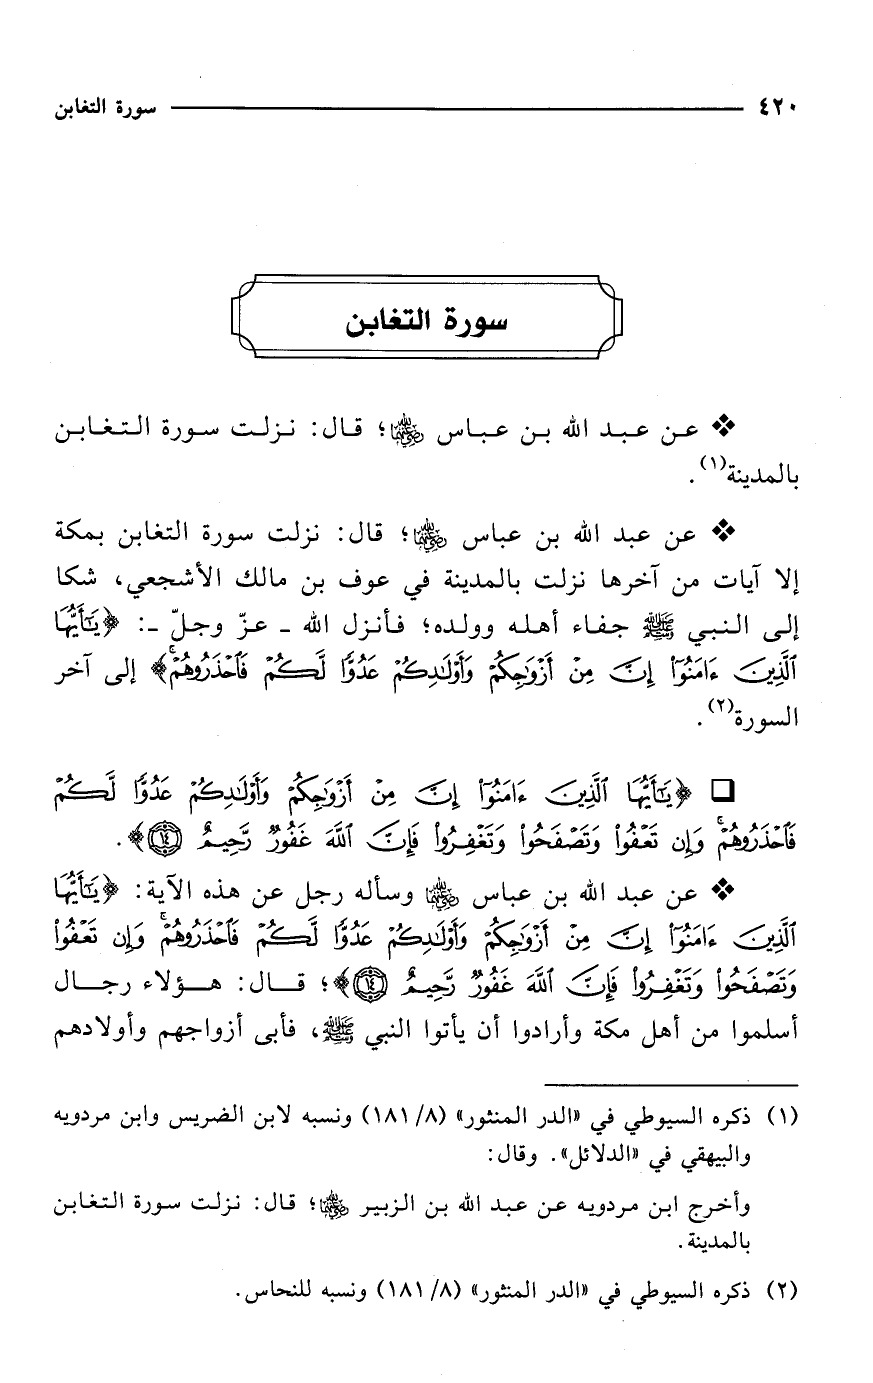 ٤٢٠ سورة التغابن
سورة التغابن
❖ عن عبد الله بن عباس رضي الله عنهما؛ قال: نزلت سورة التغابن
بالمدينة(١).
❖ عن عبد الله بن عباس رضي الله عنهما؛ قال: نزلت سورة التغابن بمكة
إلا آيات من آخرها نزلت بالمدينة في عوف بن مالك الأشجعي، شكا
إلى النبي ﷺ جفاء أهله وولده؛ فأنزل الله ـ عزّ وجلّ ـ: ﴿يَٰٓأَيُّهَا
ٱلَّذِينَ ءَامَنُوٓا۟ إِنَّ مِنْ أَزْوَٰجِكُمْ وَأَوْلَٰدِكُمْ عَدُوًّا لَّكُمْ فَٱحْذَرُوهُمْ ۚ﴾ إلى آخر
السورة(٢).
❑ ﴿يَٰٓأَيُّهَا ٱلَّذِينَ ءَامَنُوٓا۟ إِنَّ مِنْ أَزْوَٰجِكُمْ وَأَوْلَٰدِكُمْ عَدُوًّا لَّكُمْ
فَٱحْذَرُوهُمْ ۚ وَإِن تَعْفُوا۟ وَتَصْفَحُوا۟ وَتَغْفِرُوا۟ فَإِنَّ ٱللَّهَ غَفُورٌ رَّحِيمٌ ١٤﴾.
❖ عن عبد الله بن عباس رضي الله عنهما وسأله رجل عن هذه الآية: ﴿يَٰٓأَيُّهَا
ٱلَّذِينَ ءَامَنُوٓا۟ إِنَّ مِنْ أَزْوَٰجِكُمْ وَأَوْلَٰدِكُمْ عَدُوًّا لَّكُمْ فَٱحْذَرُوهُمْ ۚ وَإِن تَعْفُوا۟
وَتَصْفَحُوا۟ وَتَغْفِرُوا۟ فَإِنَّ ٱللَّهَ غَفُورٌ رَّحِيمٌ ١٤﴾؛ قال: هؤلاء رجال
أسلموا من أهل مكة وأرادوا أن يأتوا النبي ﷺ، فأبى أزواجهم وأولادهم
(١) ذكره السيوطي في «الدر المنثور» (٨/ ١٨١) ونسبه لابن الضريس وابن مردويه
والبيهقي في «الدلائل». وقال:
وأخرج ابن مردويه عن عبد الله بن الزبير رضي الله عنهما؛ قال: نزلت سورة التغابن
بالمدينة.
(٢) ذكره السيوطي في «الدر المنثور» (٨/ ١٨١) ونسبه للنحاس.